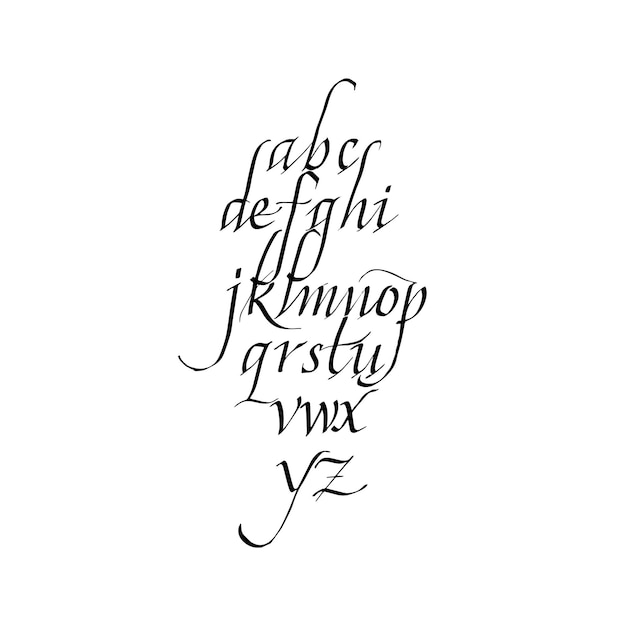 abc
defghi
jklmnop
qrstu
vwx
yz